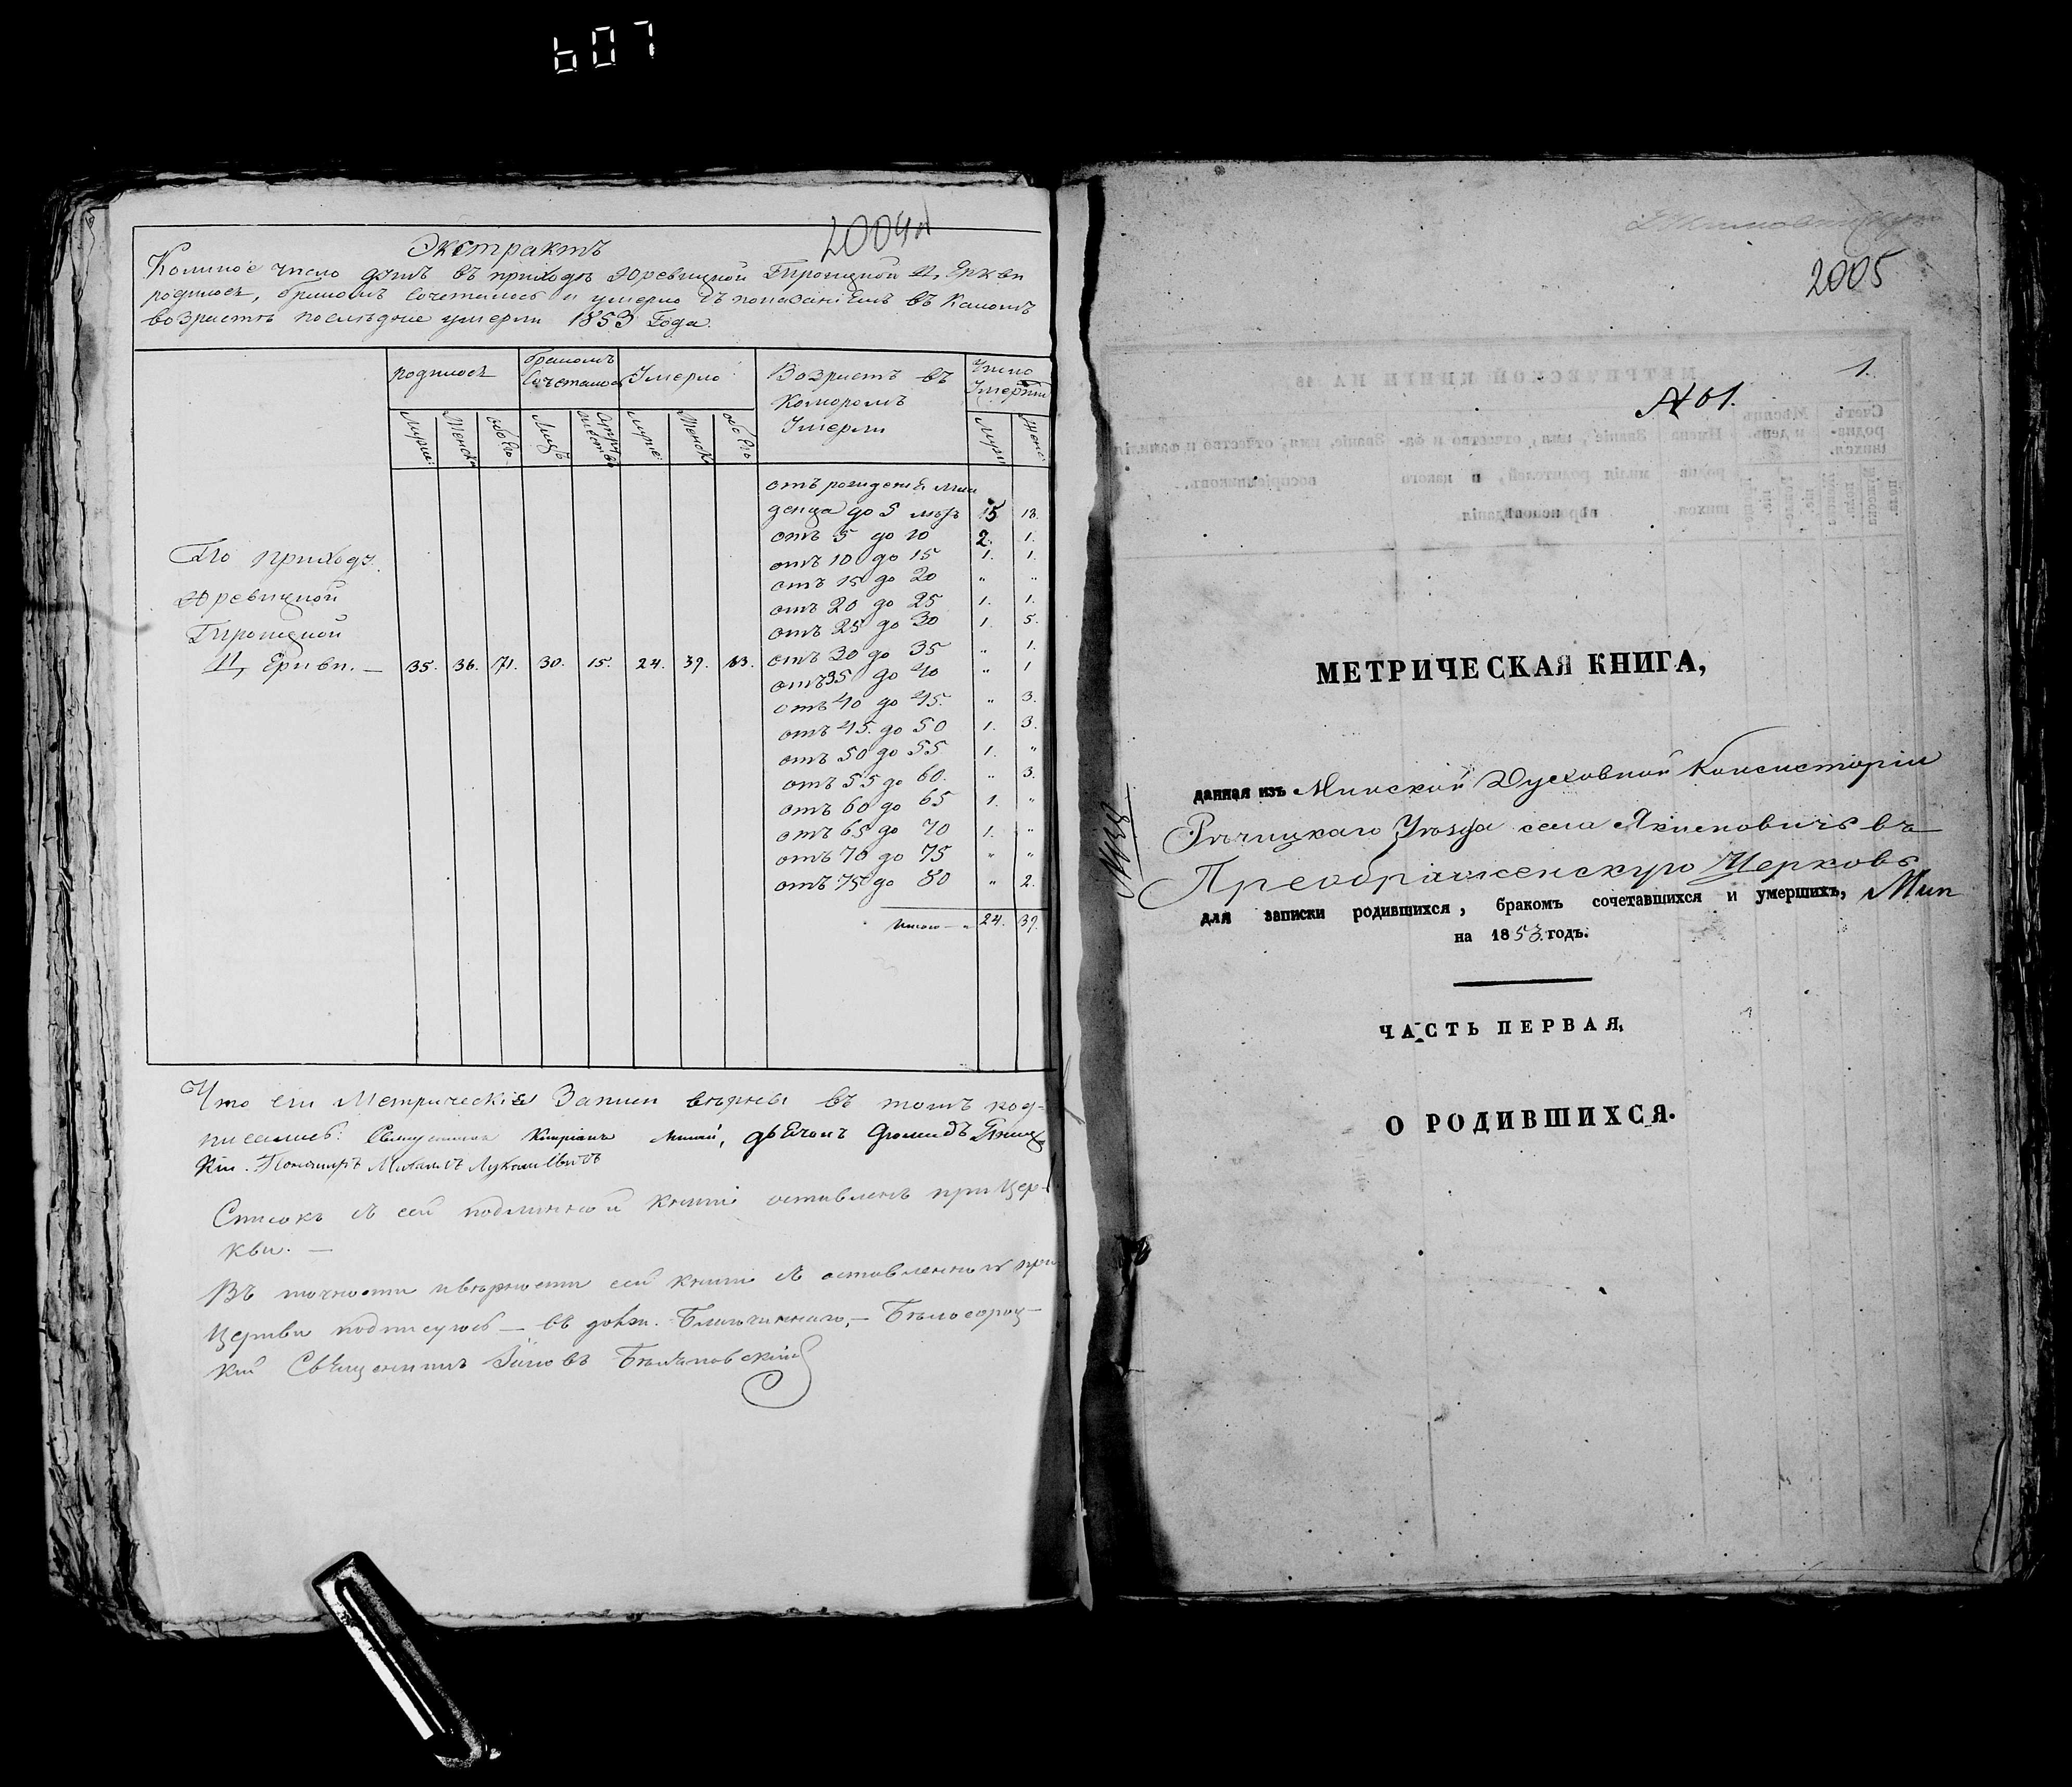 607
2004
Экстрактъ
Коликое число душъ въ приходѣ Юревицкой Троицкой Церкви
родилось, бракомъ сочеталось и умерло съ показаніемъ въ какомъ
возрастѣ послѣдніе умерли 1853 Года.
родилось бракомъ сочеталось Умерло Возрастъ въ которомъ Умерли Число Умерш
Мужс: Женск обоего Лицъ Супружествъ Мужс: Женск обоего Муж Женс
отъ рожденія мла
денца до 5 лѣтъ 15 18.
отъ 5 до 10 2. 1.
отъ 10 до 15 1. 1.
отъ 15 до 20 " "
отъ 20 до 25 1. 1.
отъ 25 до 30 1. 5.
По приходу
Юревицкой
Троицкой
Церкви. — 35. 36. 71. 30. 15. 24. 39. 63.
отъ 30 до 35 " 1.
отъ 35 до 40 " 1
отъ 40 до 45. " 3.
отъ 45. до 50 1. 3.
отъ 50 до 55 1. "
отъ 55 до 60. " 3.
отъ 60 до 65 1. "
отъ 65 до 70 1. "
отъ 70 до 75 " "
отъ 75 до 80 " 2.
Итого — 24. 39.
Что сіи Метрическія Записи вѣрны въ томъ под-
писались: Священникъ Кипріанъ дьячокъ
Пономарь Михаилъ
Списокъ съ сей подлинной книги оставленъ при Цер-
кви. —
Въ точности и вѣрности сей книги съ оставленной при
Церкви подписуюсь — въ должн. Благочиннаго, —
Священникъ
2005
1.
№ 1.
МЕТРИЧЕСКАЯ КНИГА,
данная изъ Минской Духовной Консисторіи
Рѣчицкаго Уѣзда села Якимовичъ въ
Преображенскую Церковь
для записки родившихся, бракомъ сочетавшихся и умершихъ,
на 1853 годъ.
ЧАСТЬ ПЕРВАЯ,
О РОДИВШИХСЯ.